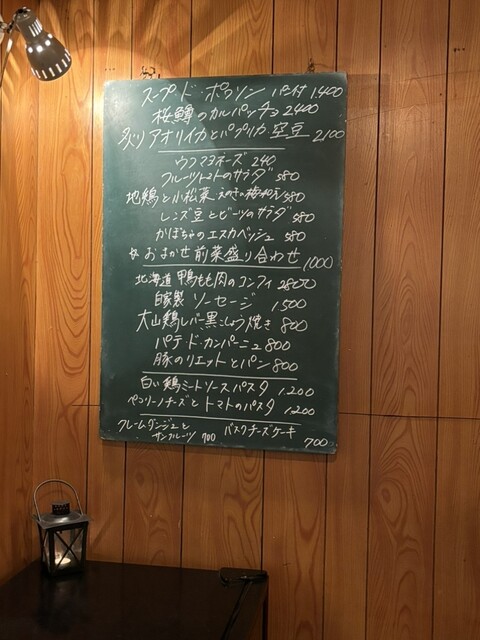 スープ・ド・ポワソン パン付 1400
桜鱒のカルパッチョ 2400
炙りアオリイカとパプリカ・空豆 2100
ウフマヨネーズ 240
フルーツトマトのサラダ 580
地鶏と小松菜 えのきの梅和え 580
レンズ豆とビーツのサラダ 580
かぼちゃのエスカベッシュ 580
☆おまかせ前菜盛り合わせ 1000
北海道 鴨もも肉のコンフィ
自家製 ソーセージ 1500
大山鶏レバー黒こしょう焼き 800
パテ・ド・カンパーニュ 800
豚のリエットとパン 800
白い鶏ミートソースパスタ 1200
ペコリーノチーズとトマトのパスタ 1200
クレームダンジュと
サングルーツ 700
バスクチーズケーキ
700